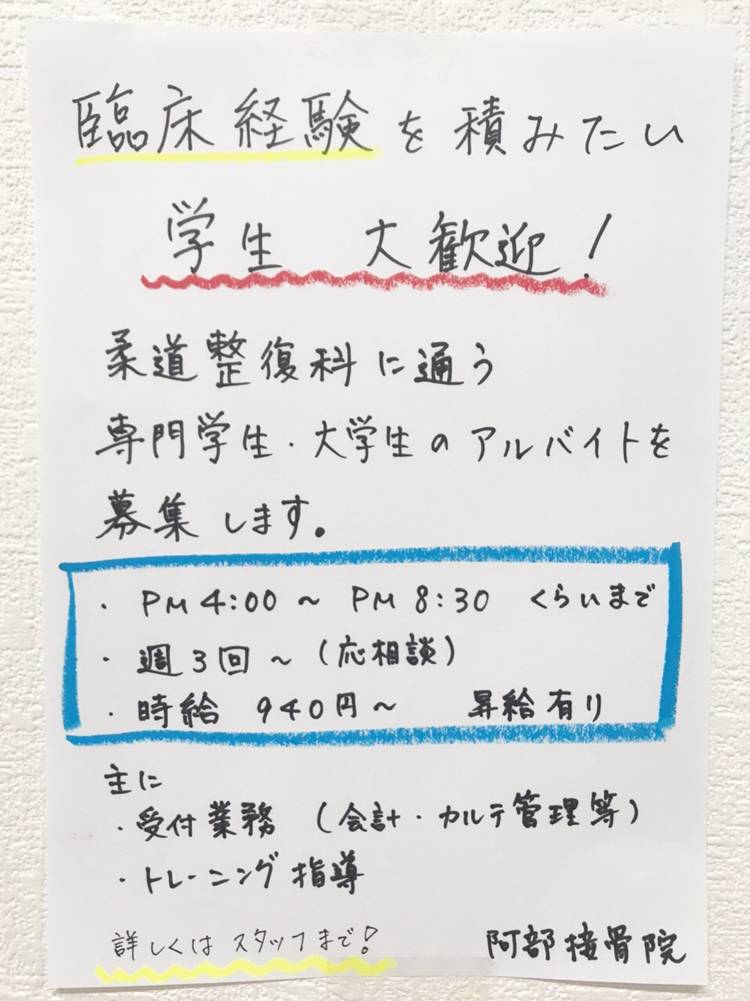 臨床経験を積みたい
学生 大歓迎!
柔道整復科に通う
専門学生・大学生のアルバイトを
募集します。
・PM4:00～PM8:30 くらいまで
・週3回～(応相談)
・時給 940円～ 昇給有り
主に
・受付業務 (会計・カルテ管理等)
・トレーニング指導
詳しくはスタッフまで! 阿部接骨院